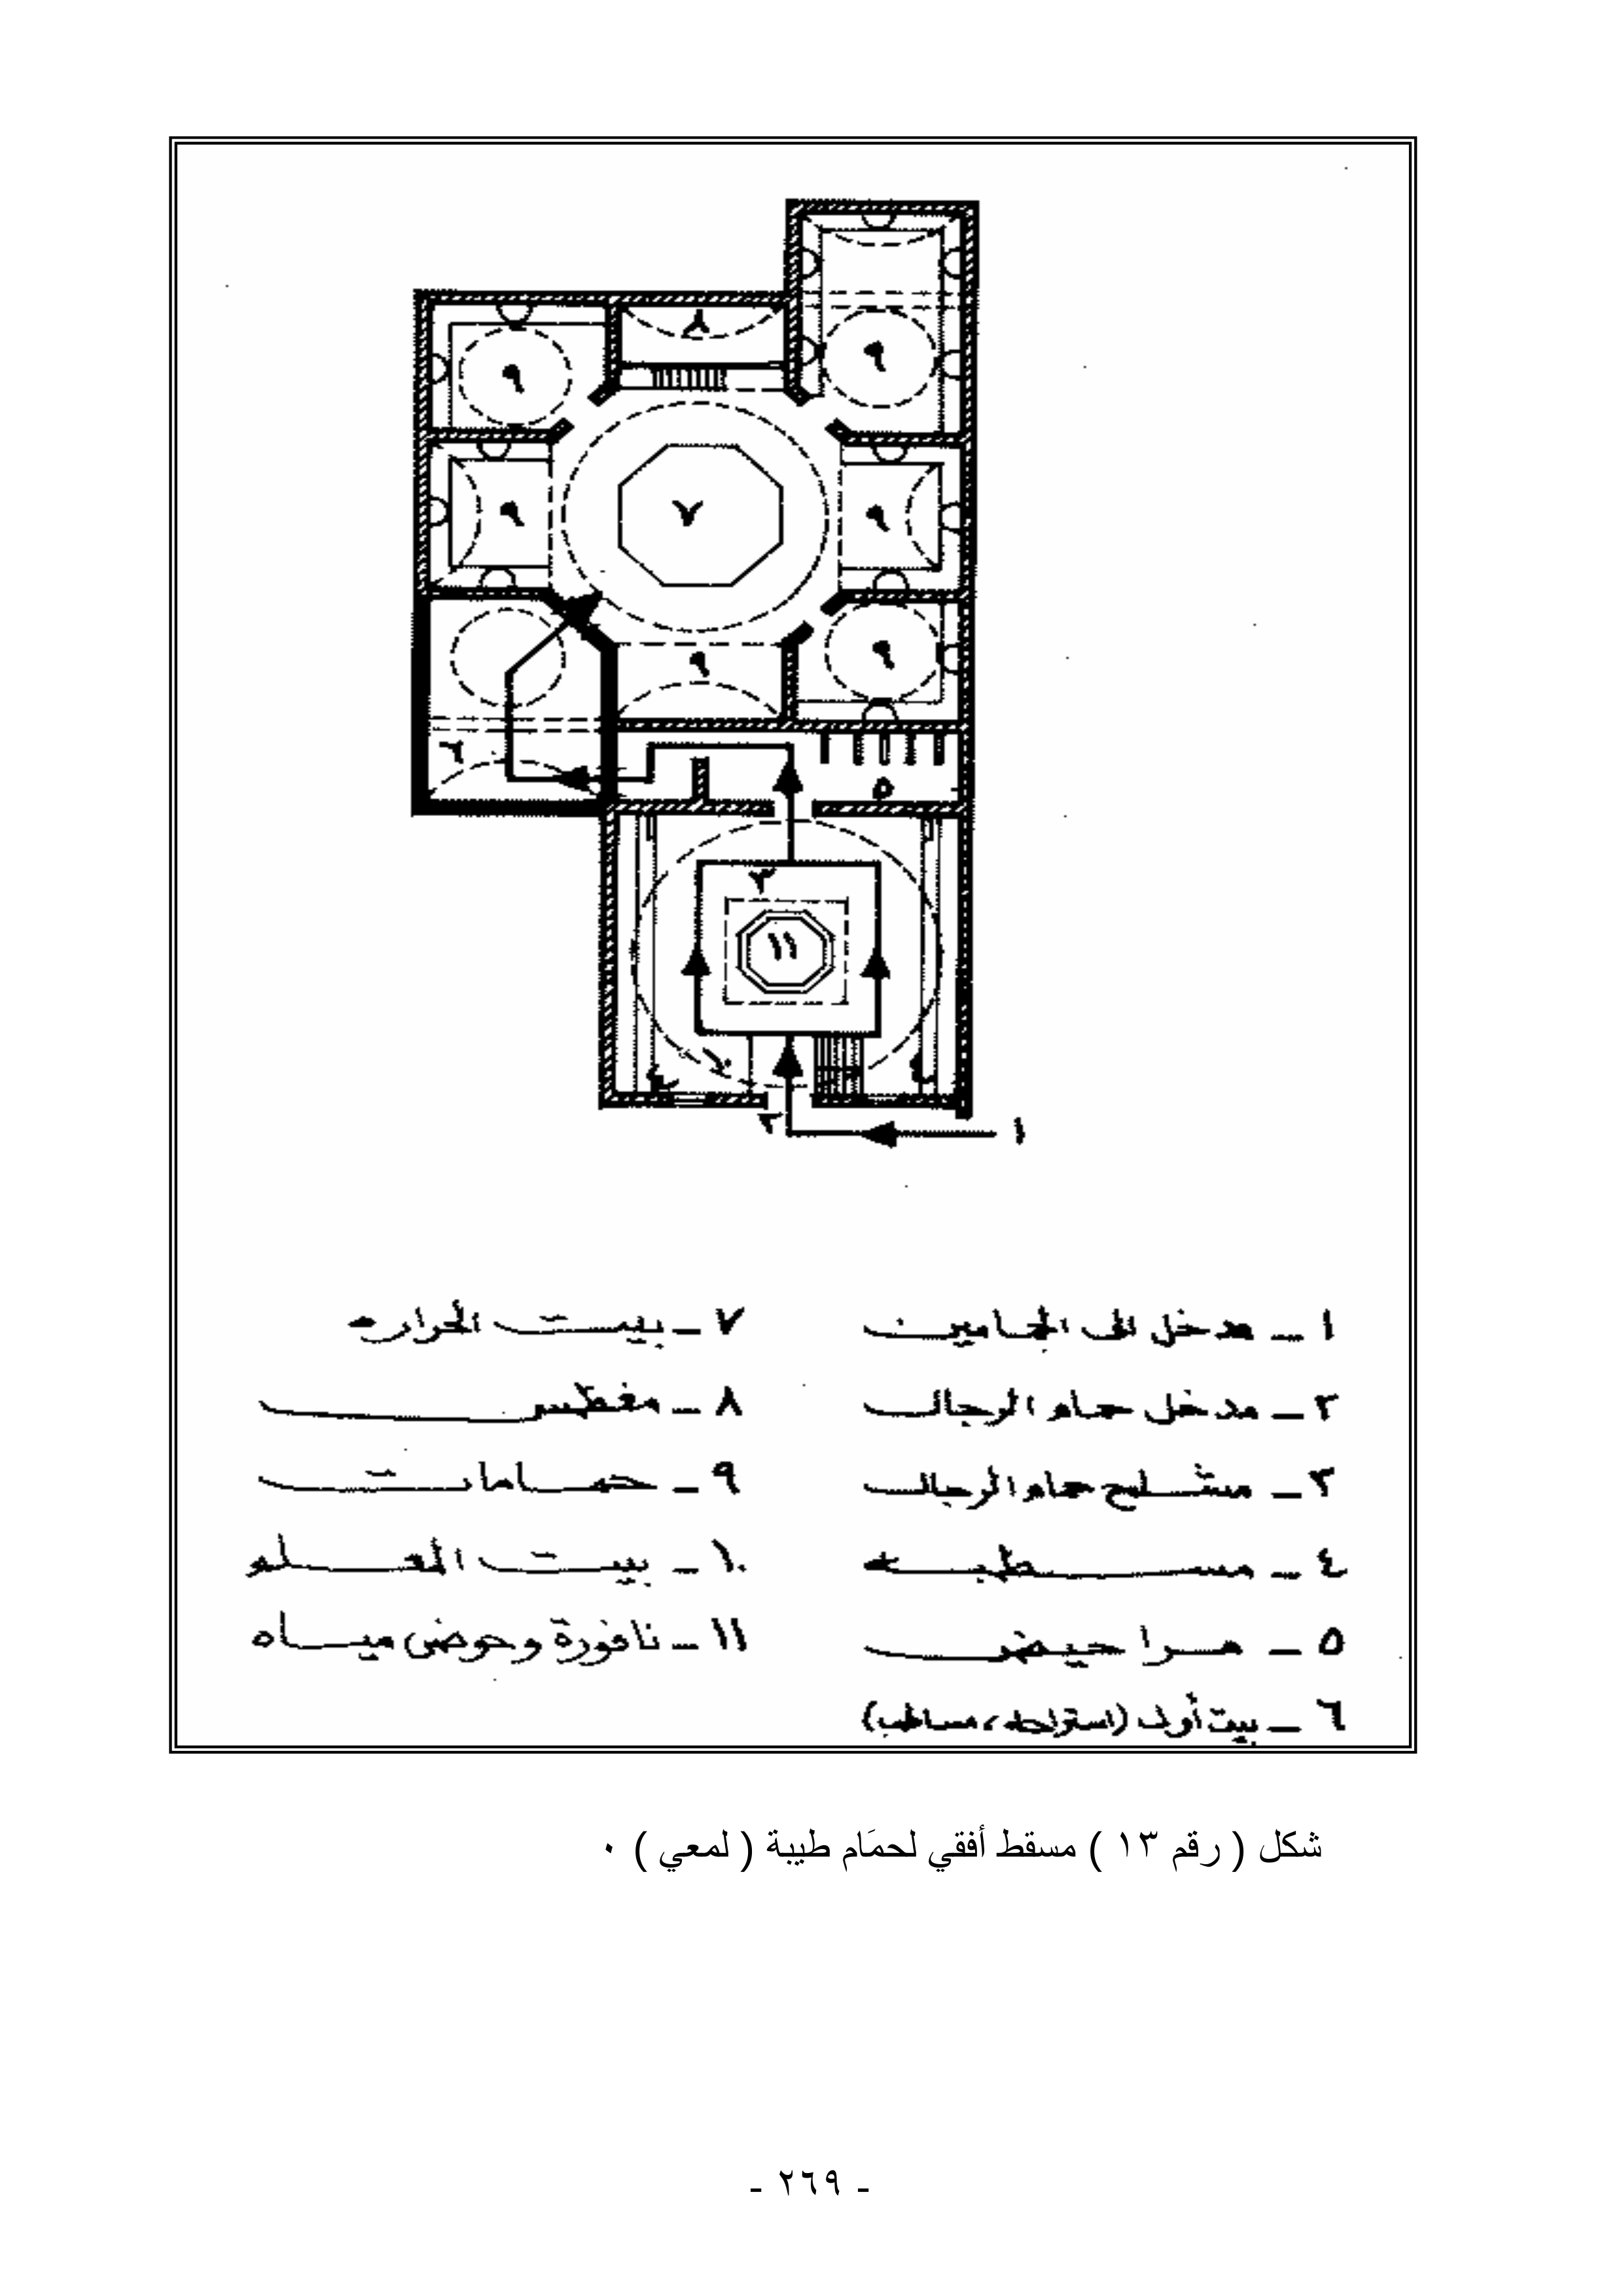 ٨
٩
٩
٩
٧
٩
٩
٩
٦
٥
٣
١١
١٠
٤
٤
٢
١
١ ـ مدخل الى الحمامين
٢ ـ مدخل حمام الرجال
٣ ـ مشلح حمام الرجال
٤ ـ مسطبه
٥ ـ مراحيض
٦ ـ بيت أول (استراحه، مساطب)
٧ ـ بيت الحراره
٨ ـ مغطس
٩ ـ حمامات
١٠ ـ بيت المعلم
١١ ـ نافورة وحوض مياه
شكل ( رقم ١٣ ) مسقط أفقي لحمَام طيبة ( لمعي ) ٠
- ٢٦٩ -